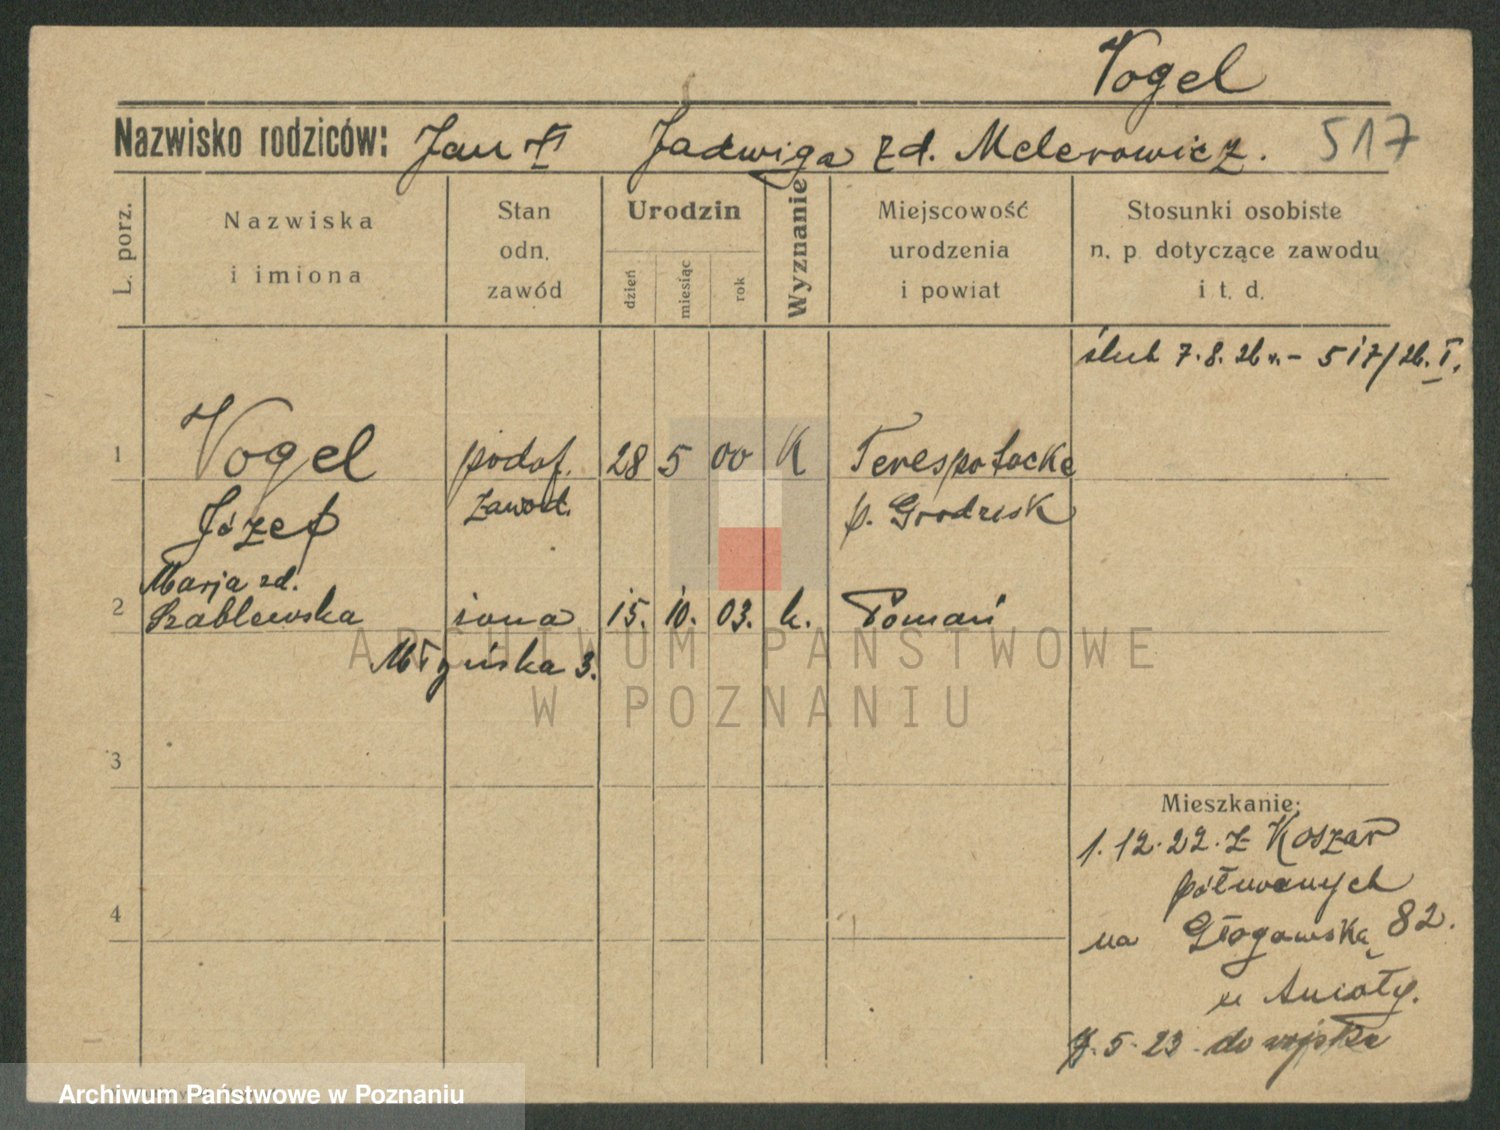 Vogel
Nazwisko rodziców: Jan VI Jadwiga zd. Melerowicz. 517
L. porz.
Nazwiska
i imiona
Stan
odn.
zawód
Urodzin
dzień
miesiąc
rok
Wyznanie
Miejscowość
urodzenia
i powiat
Stosunki osobiste
n. p. dotyczące zawodu
i t. d.
ślub 7.8.26 r. – 517/26. I.
1 Vogel podof. 28 5 00 K Terespotockie
Józef zawod. p. Grodzisk
Marja zd.
2 Szablewska żona 15. 10. 03. k. Poznań
Młyńska 3.
3
Mieszkanie:
1.12.22. z Koszar
4
na Głogowską 82.
u Anioły.
7.5.23 do wojska
ARCHIWUM PAŃSTWOWE
W POZNANIU
Archiwum Państwowe w Poznaniu